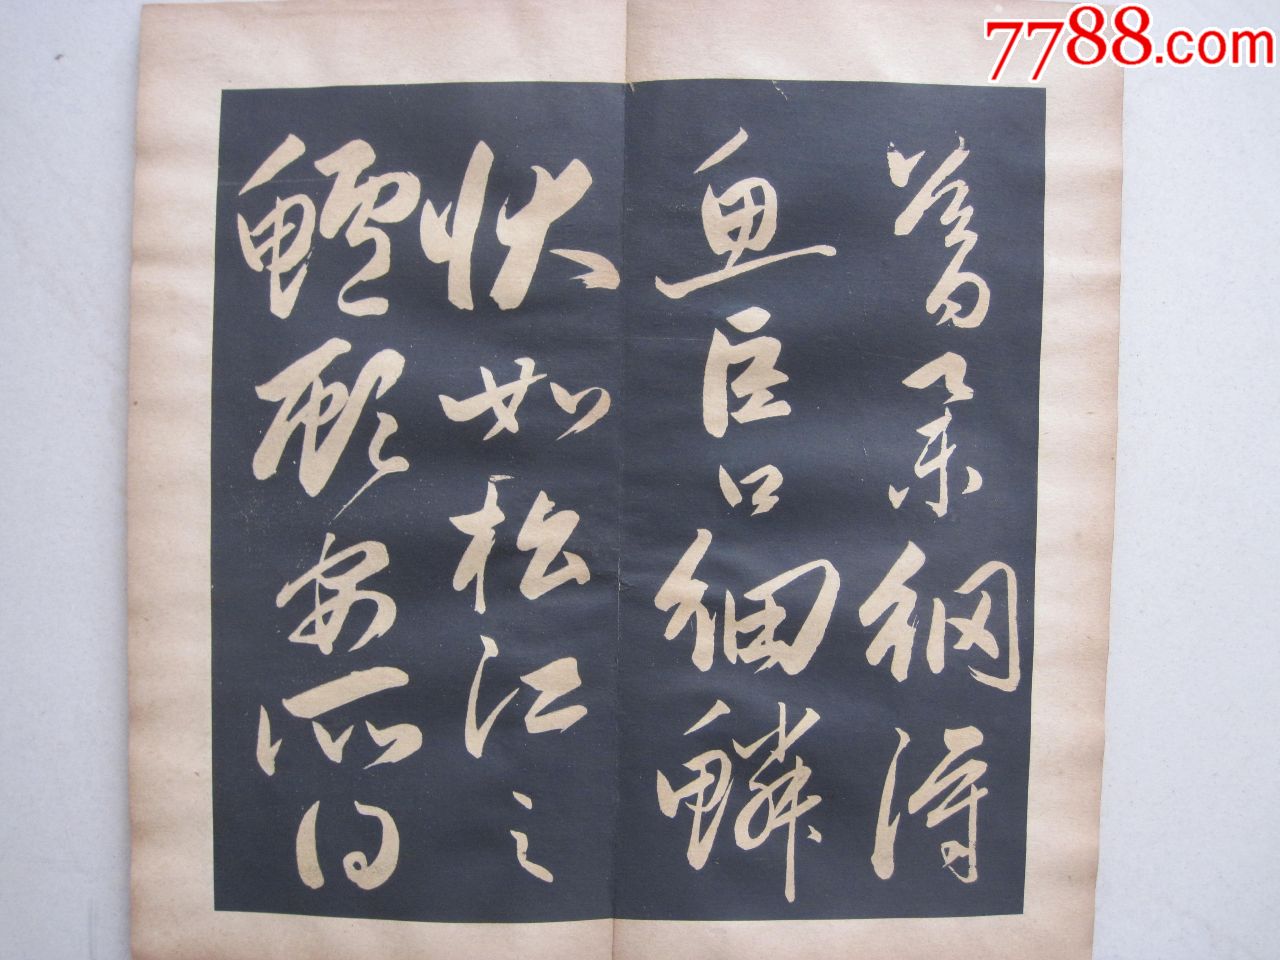 7788.com
暮舉網得
魚巨口細鱗
狀如松江之
鱸顧安所得